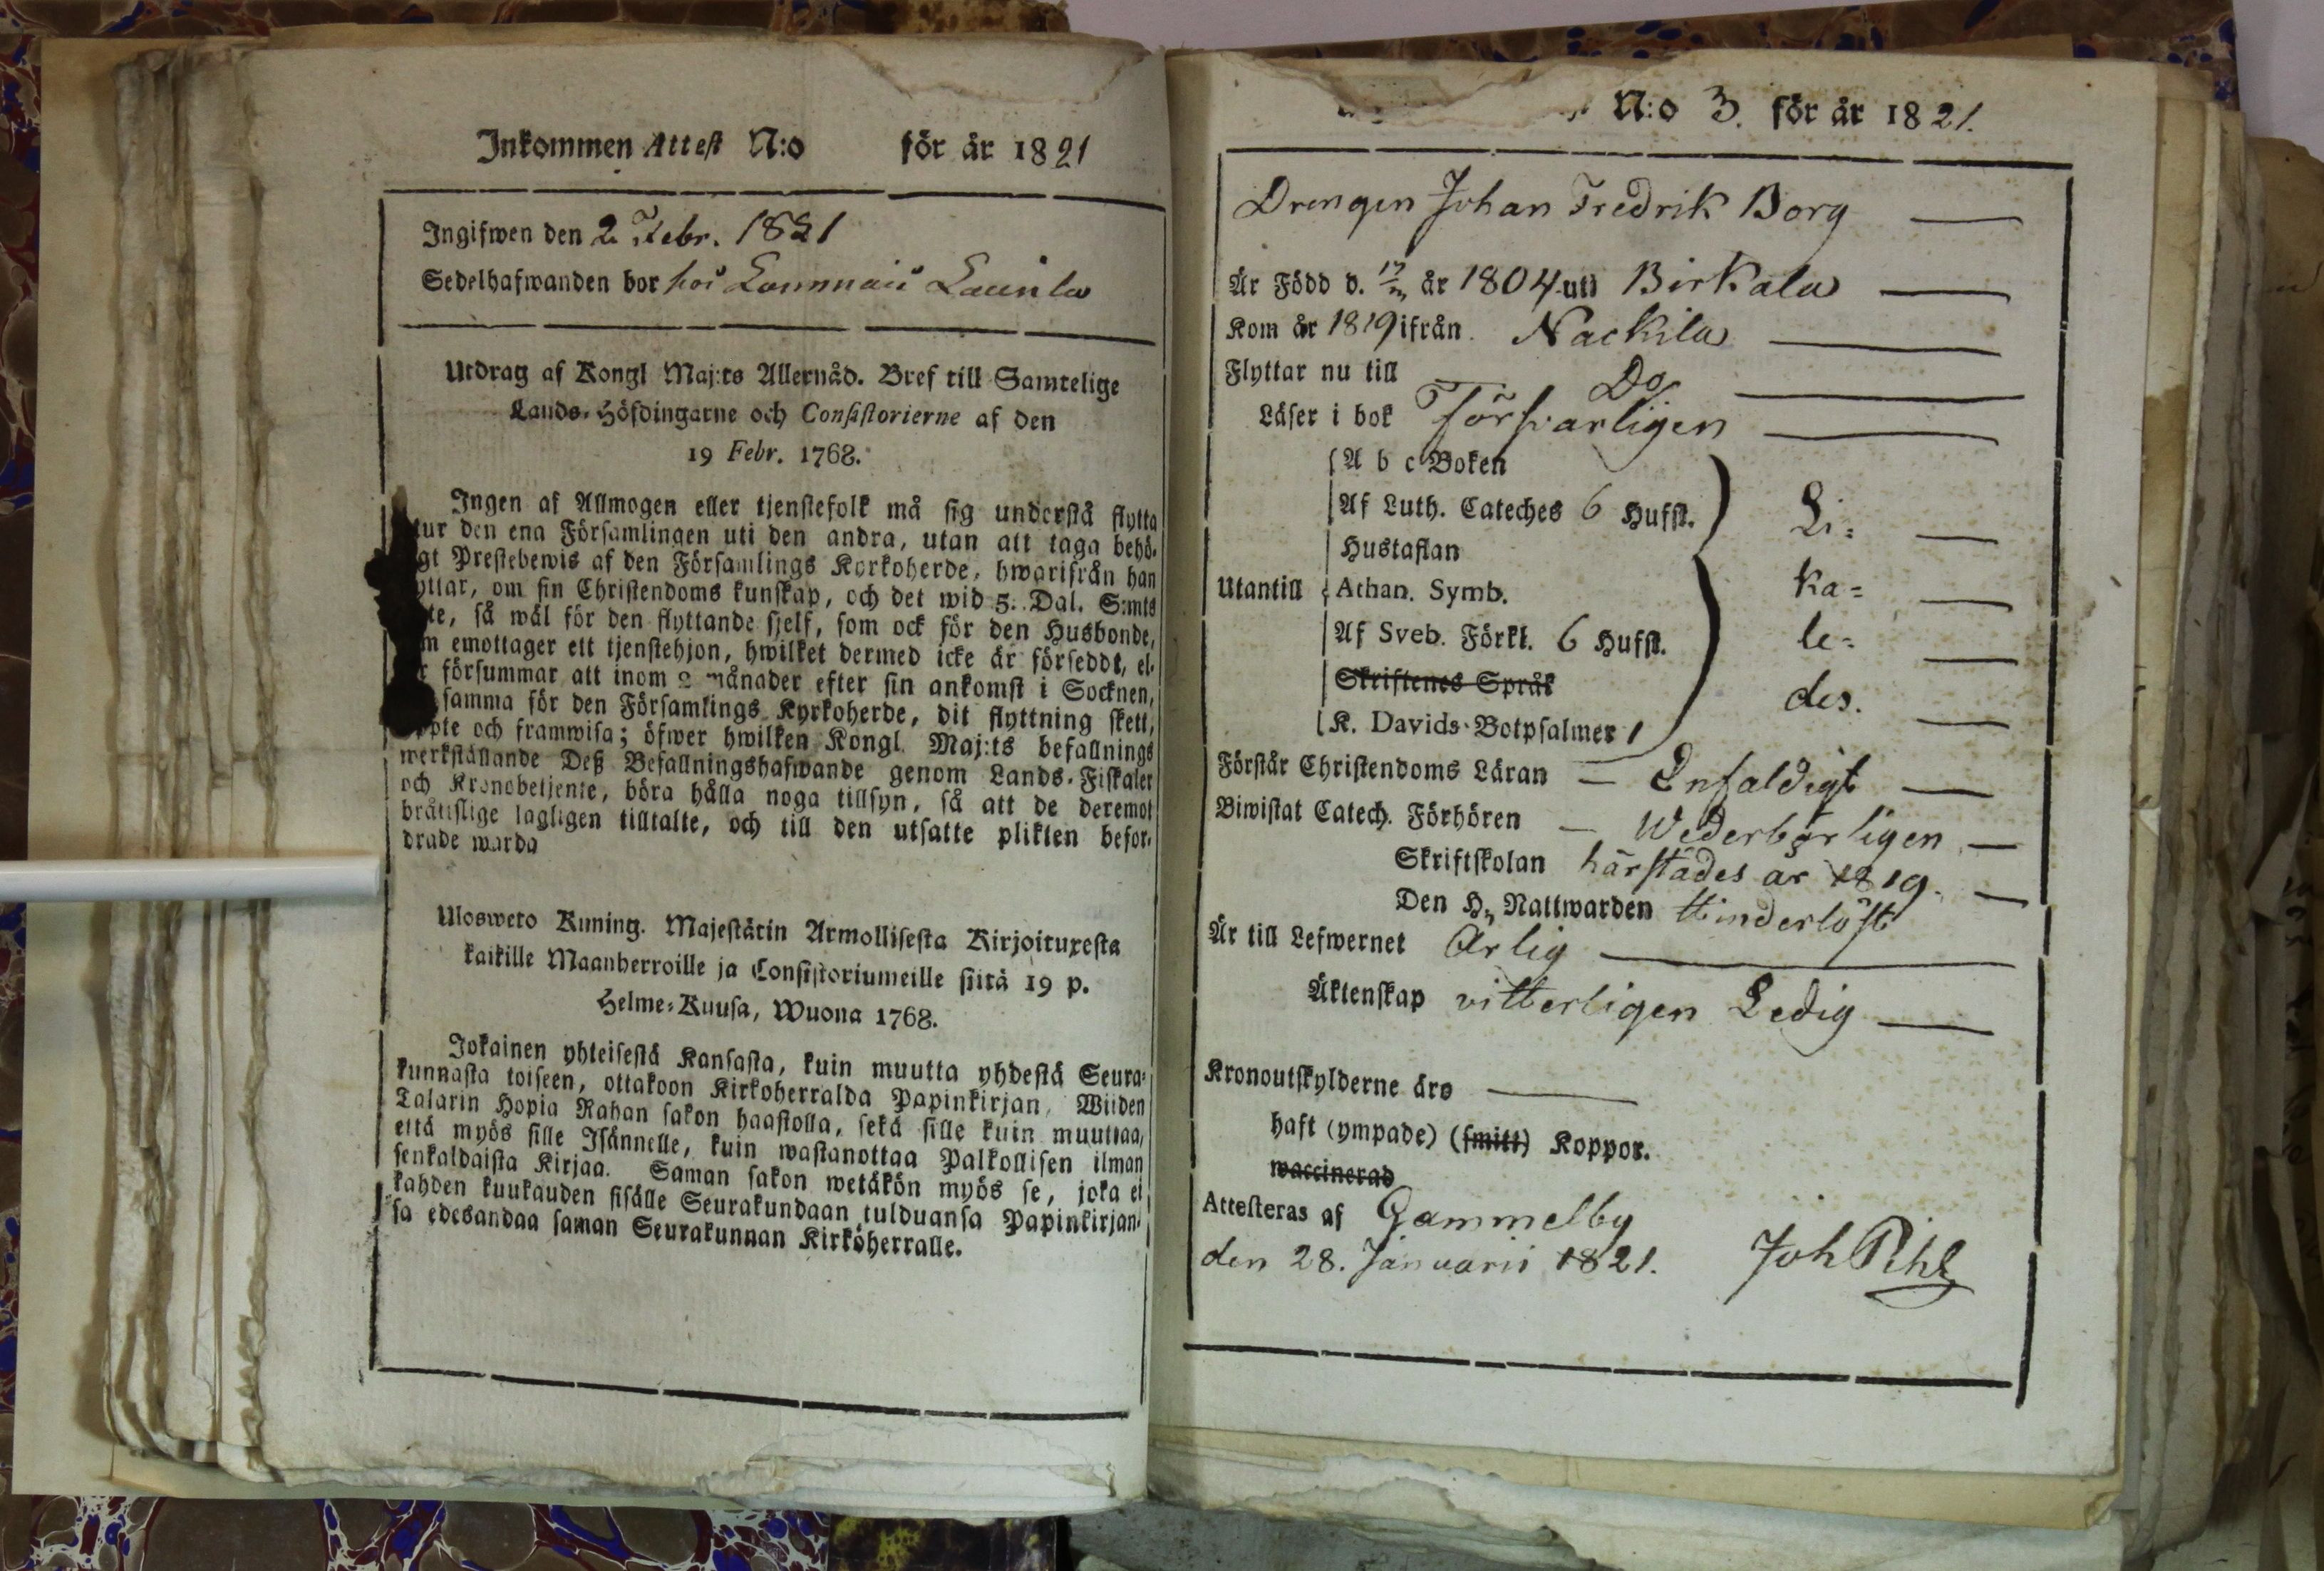 Inkommen Attest N:o för år 1821
Ingifwen den 2 Febr. 1821
Sedelhafwanden bor hos
Utdrag af Kongl Maj:ts Allernåd. Bref till Samtelige
Lands-Höfdingarne och Consistorierne af den
19 Febr. 1768.
Ingen af Allmogen eller tjenstefolk må sig understå flytta
utur den ena Församlingen uti den andra, utan att taga behö-
gt Prestebewis af den Församlings Kyrkoherde, hwarifrån han
yttar, om sin Christendoms kunskap, och det wid 5. Dal. S:mts
te, så wäl för den flyttande sjelf, som ock för den Husbonde,
m emottager ett tjenstehjon, hwilket dermed icke är förseddt, el-
r försummar att inom 2 månader efter sin ankomst i Socknen,
samma för den Församlings Kyrkoherde, dit flyttning skett,
ppte och framwisa; öfwer hwilken Kongl. Maj:ts befallnings
werkställande Deß Befallningshafwande genom Lands-Fiskaler
och Kronobetjente, böra hålla noga tillsyn, så att de deremot
bråttslige lagligen tilltalte, och till den utsatte plikten befor-
drade warda
Ulosweto Kuning. Majestätin Armollisesta Kirjoituxesta
kaikille Maanherroille ja Consistoriumeille siitä 19 p.
Helme-Kuusa, Wuona 1768.
Jokainen yhteisestä Kansasta, kuin muutta yhdestä Seura-
kunnasta toiseen, ottakoon Kirkoherralda Papinkirjan, Wiiden
Talarin Hopia Rahan sakon haastolla, sekä sille kuin muuttaa,
että myös sille Isännelle, kuin wastanottaa Palkollisen ilman
senkaldaista Kirjaa. Saman sakon wetäkön myös se, joka ei
kahden kuukauden sisälle Seurakundaan tulduansa Papinkirjan-
sa edesandaa saman Seurakunnan Kirköherralle.
N:o 3. för år 1821.
Drengen Johan Fredrik Borg
Är Född d. år 1804 uti Birkala
Kom år 1819 ifrån Nackila
Flyttar nu till Do
Läser i bok Försvarligen
A b c Boken
Af Luth. Cateches 6 Hufst. Li-
Hustaflan
Utantill Athan. Symb. ka-
Af Sveb. Förkl. 6 Hufst. le-
Skriftenes Språk
des.
K. Davids Botpsalmer 1
Förstår Christendoms Läran Enfaldigt
Biwistat Catech. Förhören Wederbörligen
Skriftskolan härstädes år 1819.
Den H. Nattwarden Hinderlöst
Är till Lefwernet Ärlig
Äktenskap vitterligen Ledig
Kronoutskylderne äro
haft (ympade) (smitt) Koppor.
waccinerad
Attesteras af Gammelby
den 28. Januarii 1821. Joh Pihl